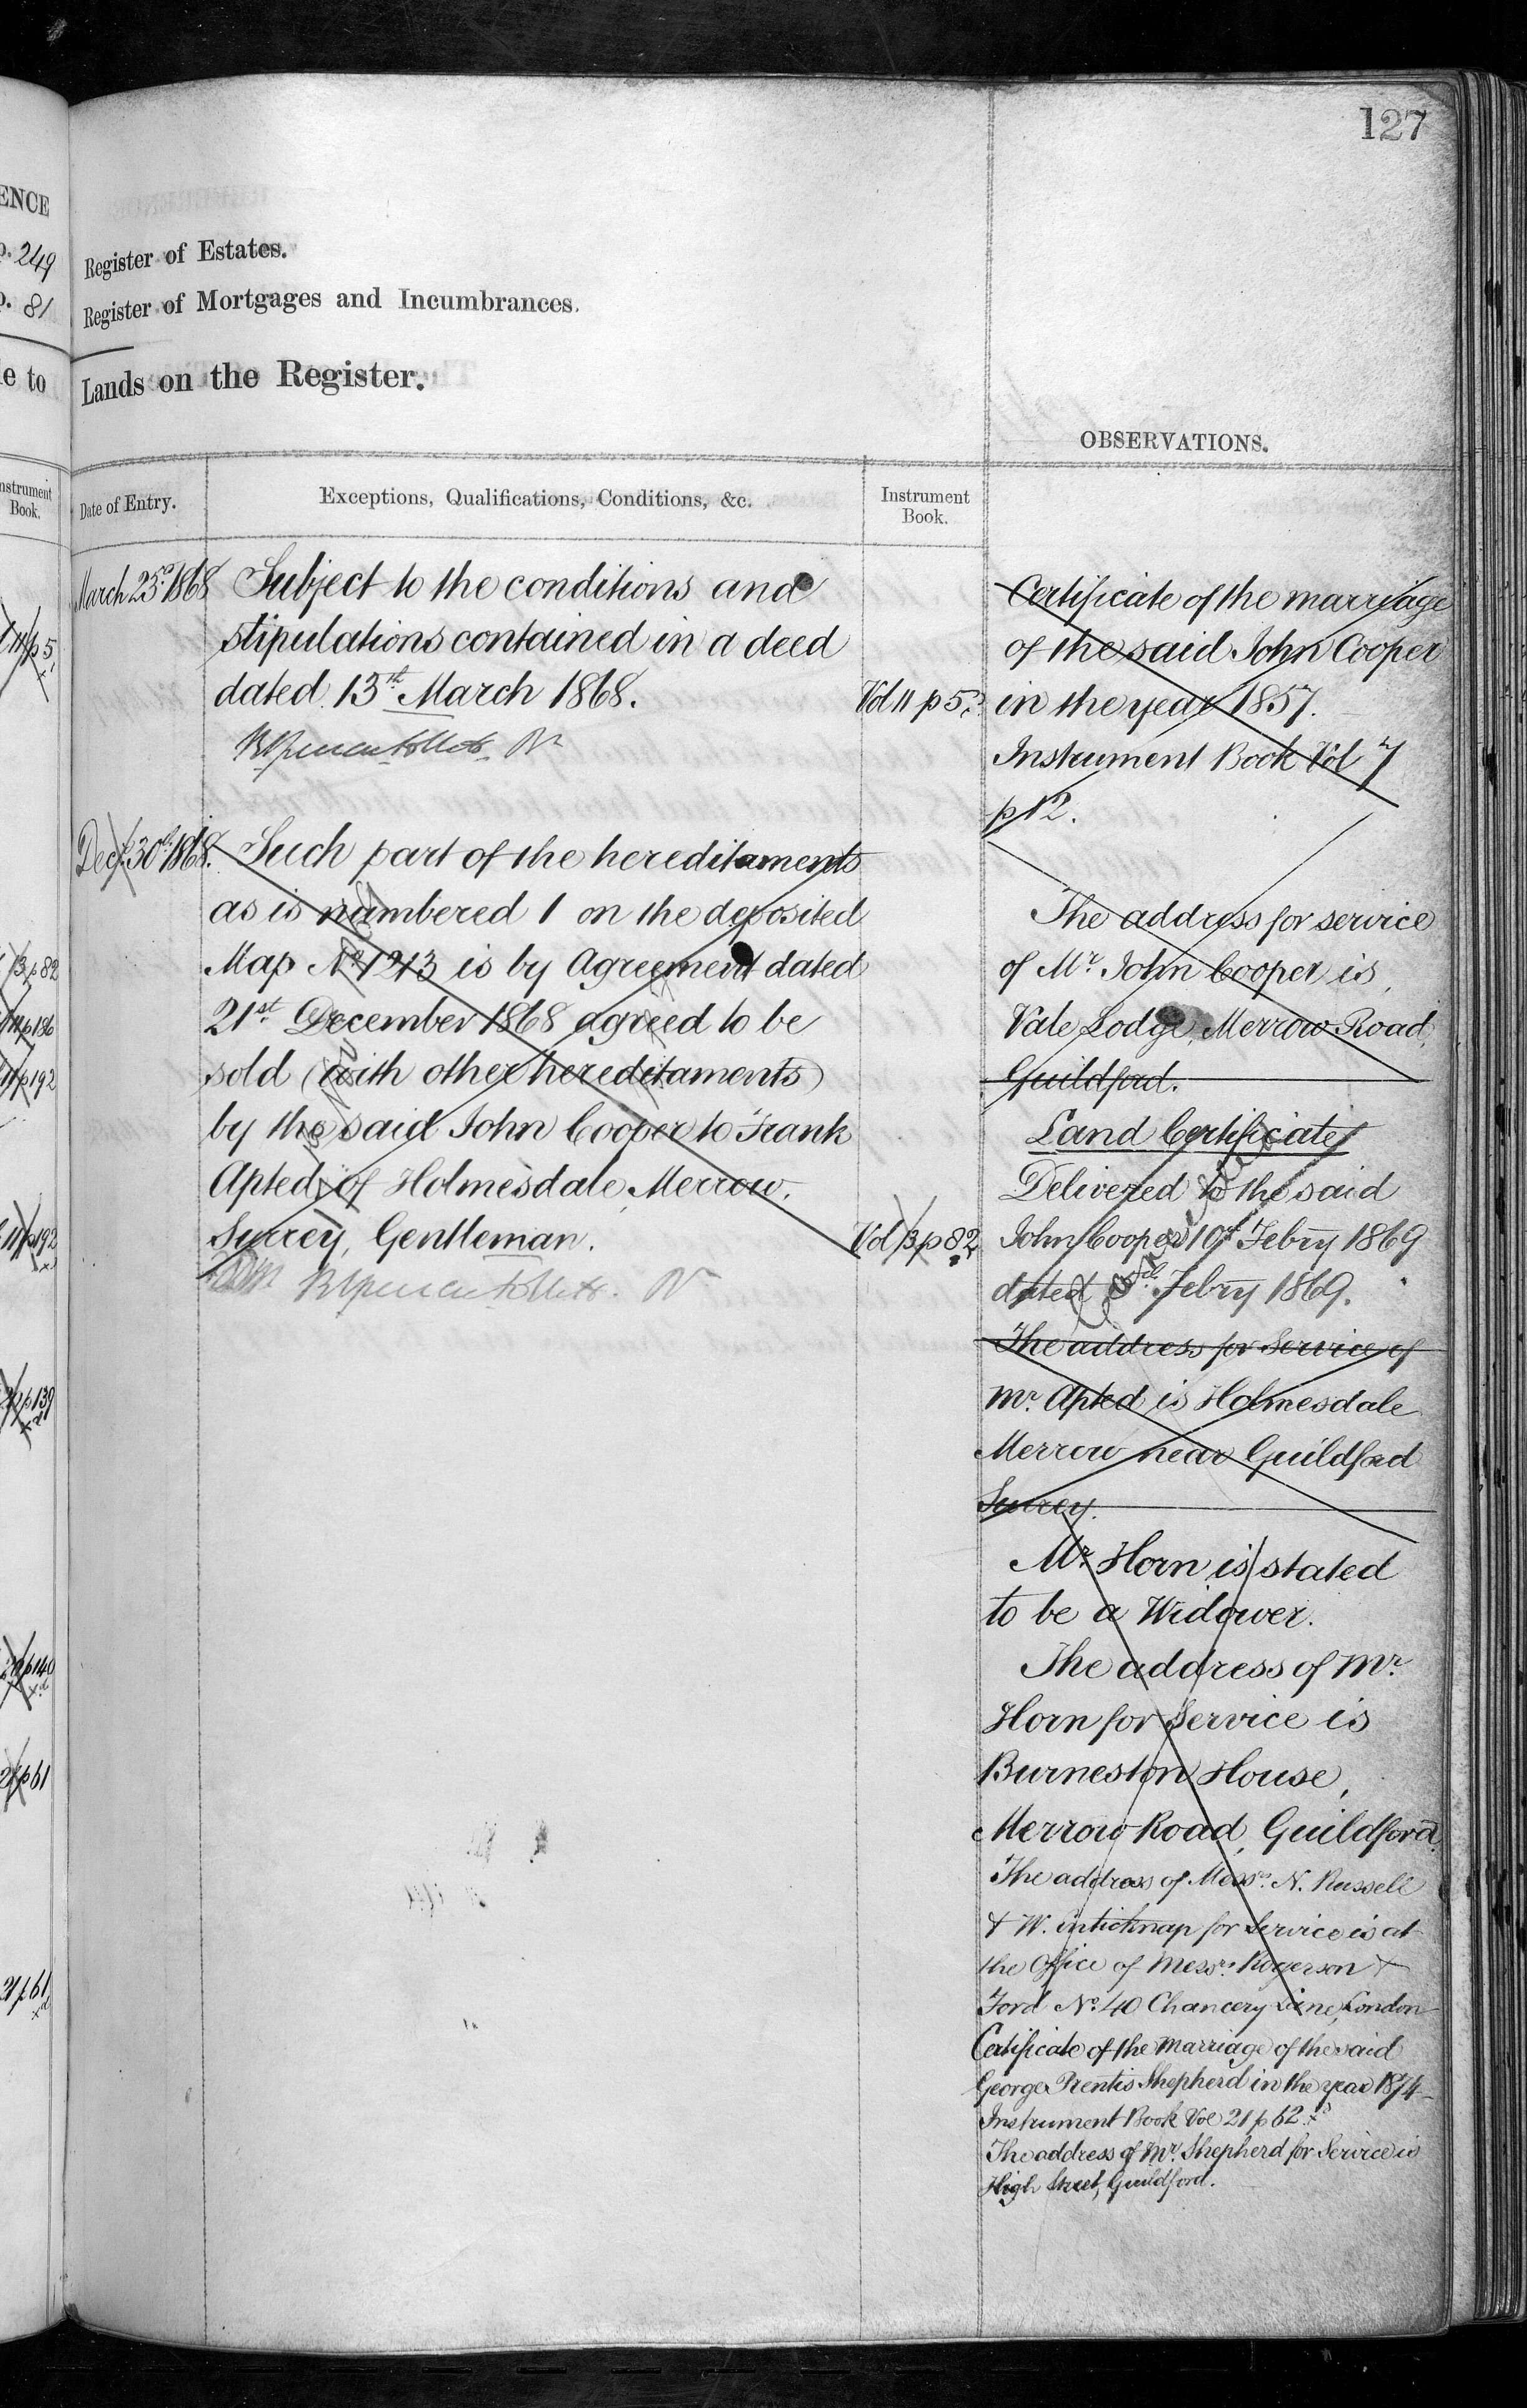 127
ENCE
p. 249
p. 81
le to
Instrument
Book.
Register of Estates.
Register of Mortgages and Incumbrances.
Lands on the Register.
OBSERVATIONS.
Date of Entry.
Exceptions, Qualifications, Conditions, &c.
Instrument
Book.
March 23rd 1868
Subject to the conditions and
stipulations contained in a deed
dated 13th March 1868.
Vol 11 p 5
Decr 30th 1868.
Such part of the hereditaments
as is numbered 1 on the deposited
Map No 1213 is by Agreement dated
21st December 1868 agreed to be
sold (with other hereditaments)
by the said John Cooper to Frank
Apted, of Holmesdale, Merrow,
Surrey, Gentleman.
Vol 13 p 82
Certificate of the marriage
of the said John Cooper
in the year 1857.
Instrument Book Vol 7
p 12.
The address for service
of Mr. John Cooper is
Vale Lodge, Merrow Road,
Guildford.
Land Certificate
Delivered to the said
John Cooper 10th Febry 1869
dated Febry 1869.
The address for Service of
Mr. Apted is Holmesdale
Merrow near Guildford
Surrey.
Mr. Horn is stated
to be a Widower.
The address of Mr.
Horn for Service is
Burneston House,
Merrow Road, Guildford.
The address of Messrs. N. Russell
& W. Intichnap for Service is at
the Office of Messrs. Rogerson &
Ford No. 40 Chancery Lane, London
Certificate of the Marriage of the said
George Prentis Shepherd in the year 1874
Instrument Book Vol 21 p 62
The address of Mr. Shepherd for Service is
High Street, Guildford.
11 p 5
13 p 82
11 p 186
11 p 192
11 p 192
p 139
20 p 140
21 p 61
21 p 61